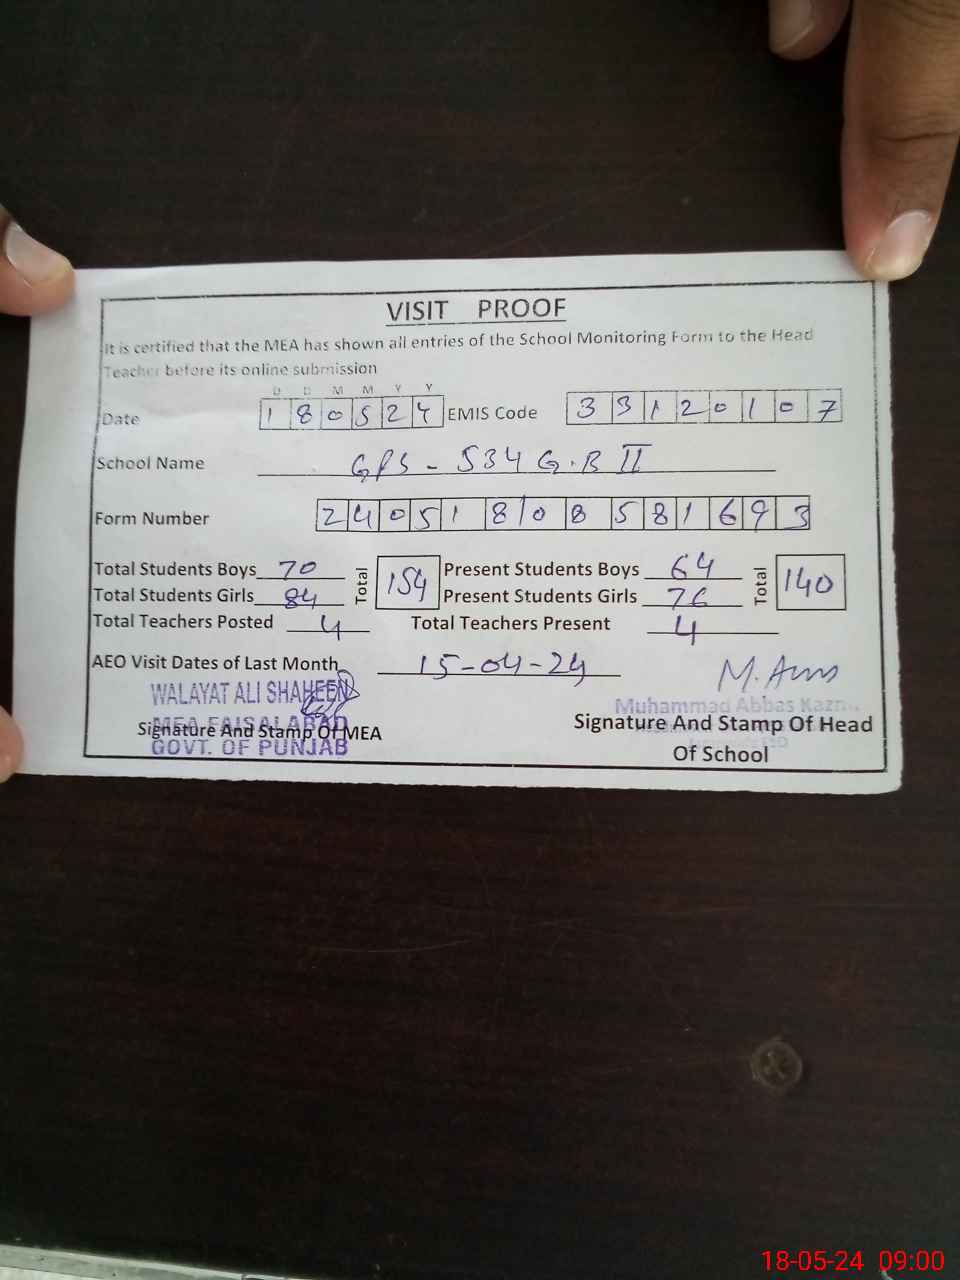 VISIT PROOF
It is certified that the MEA has shown all entries of the School Monitoring Form to the Head
Teacher before its online submission
D D M M Y Y
Date 180524 EMIS Code 33120107
School Name GPS - 534 G.B II
Form Number 24051808581693
Total Students Boys 70 Total 154 Present Students Boys 64 Total 140
Total Students Girls 84 Present Students Girls 76
Total Teachers Posted 4 Total Teachers Present 4
AEO Visit Dates of Last Month 15-04-24
WALAYAT ALI SHAHEEN
Muhammad Abbas
Signature And Stamp Of MEA
MEA FAISALABAD
GOVT. OF PUNJAB
Signature And Stamp Of Head
Of School
18-05-24 09:00